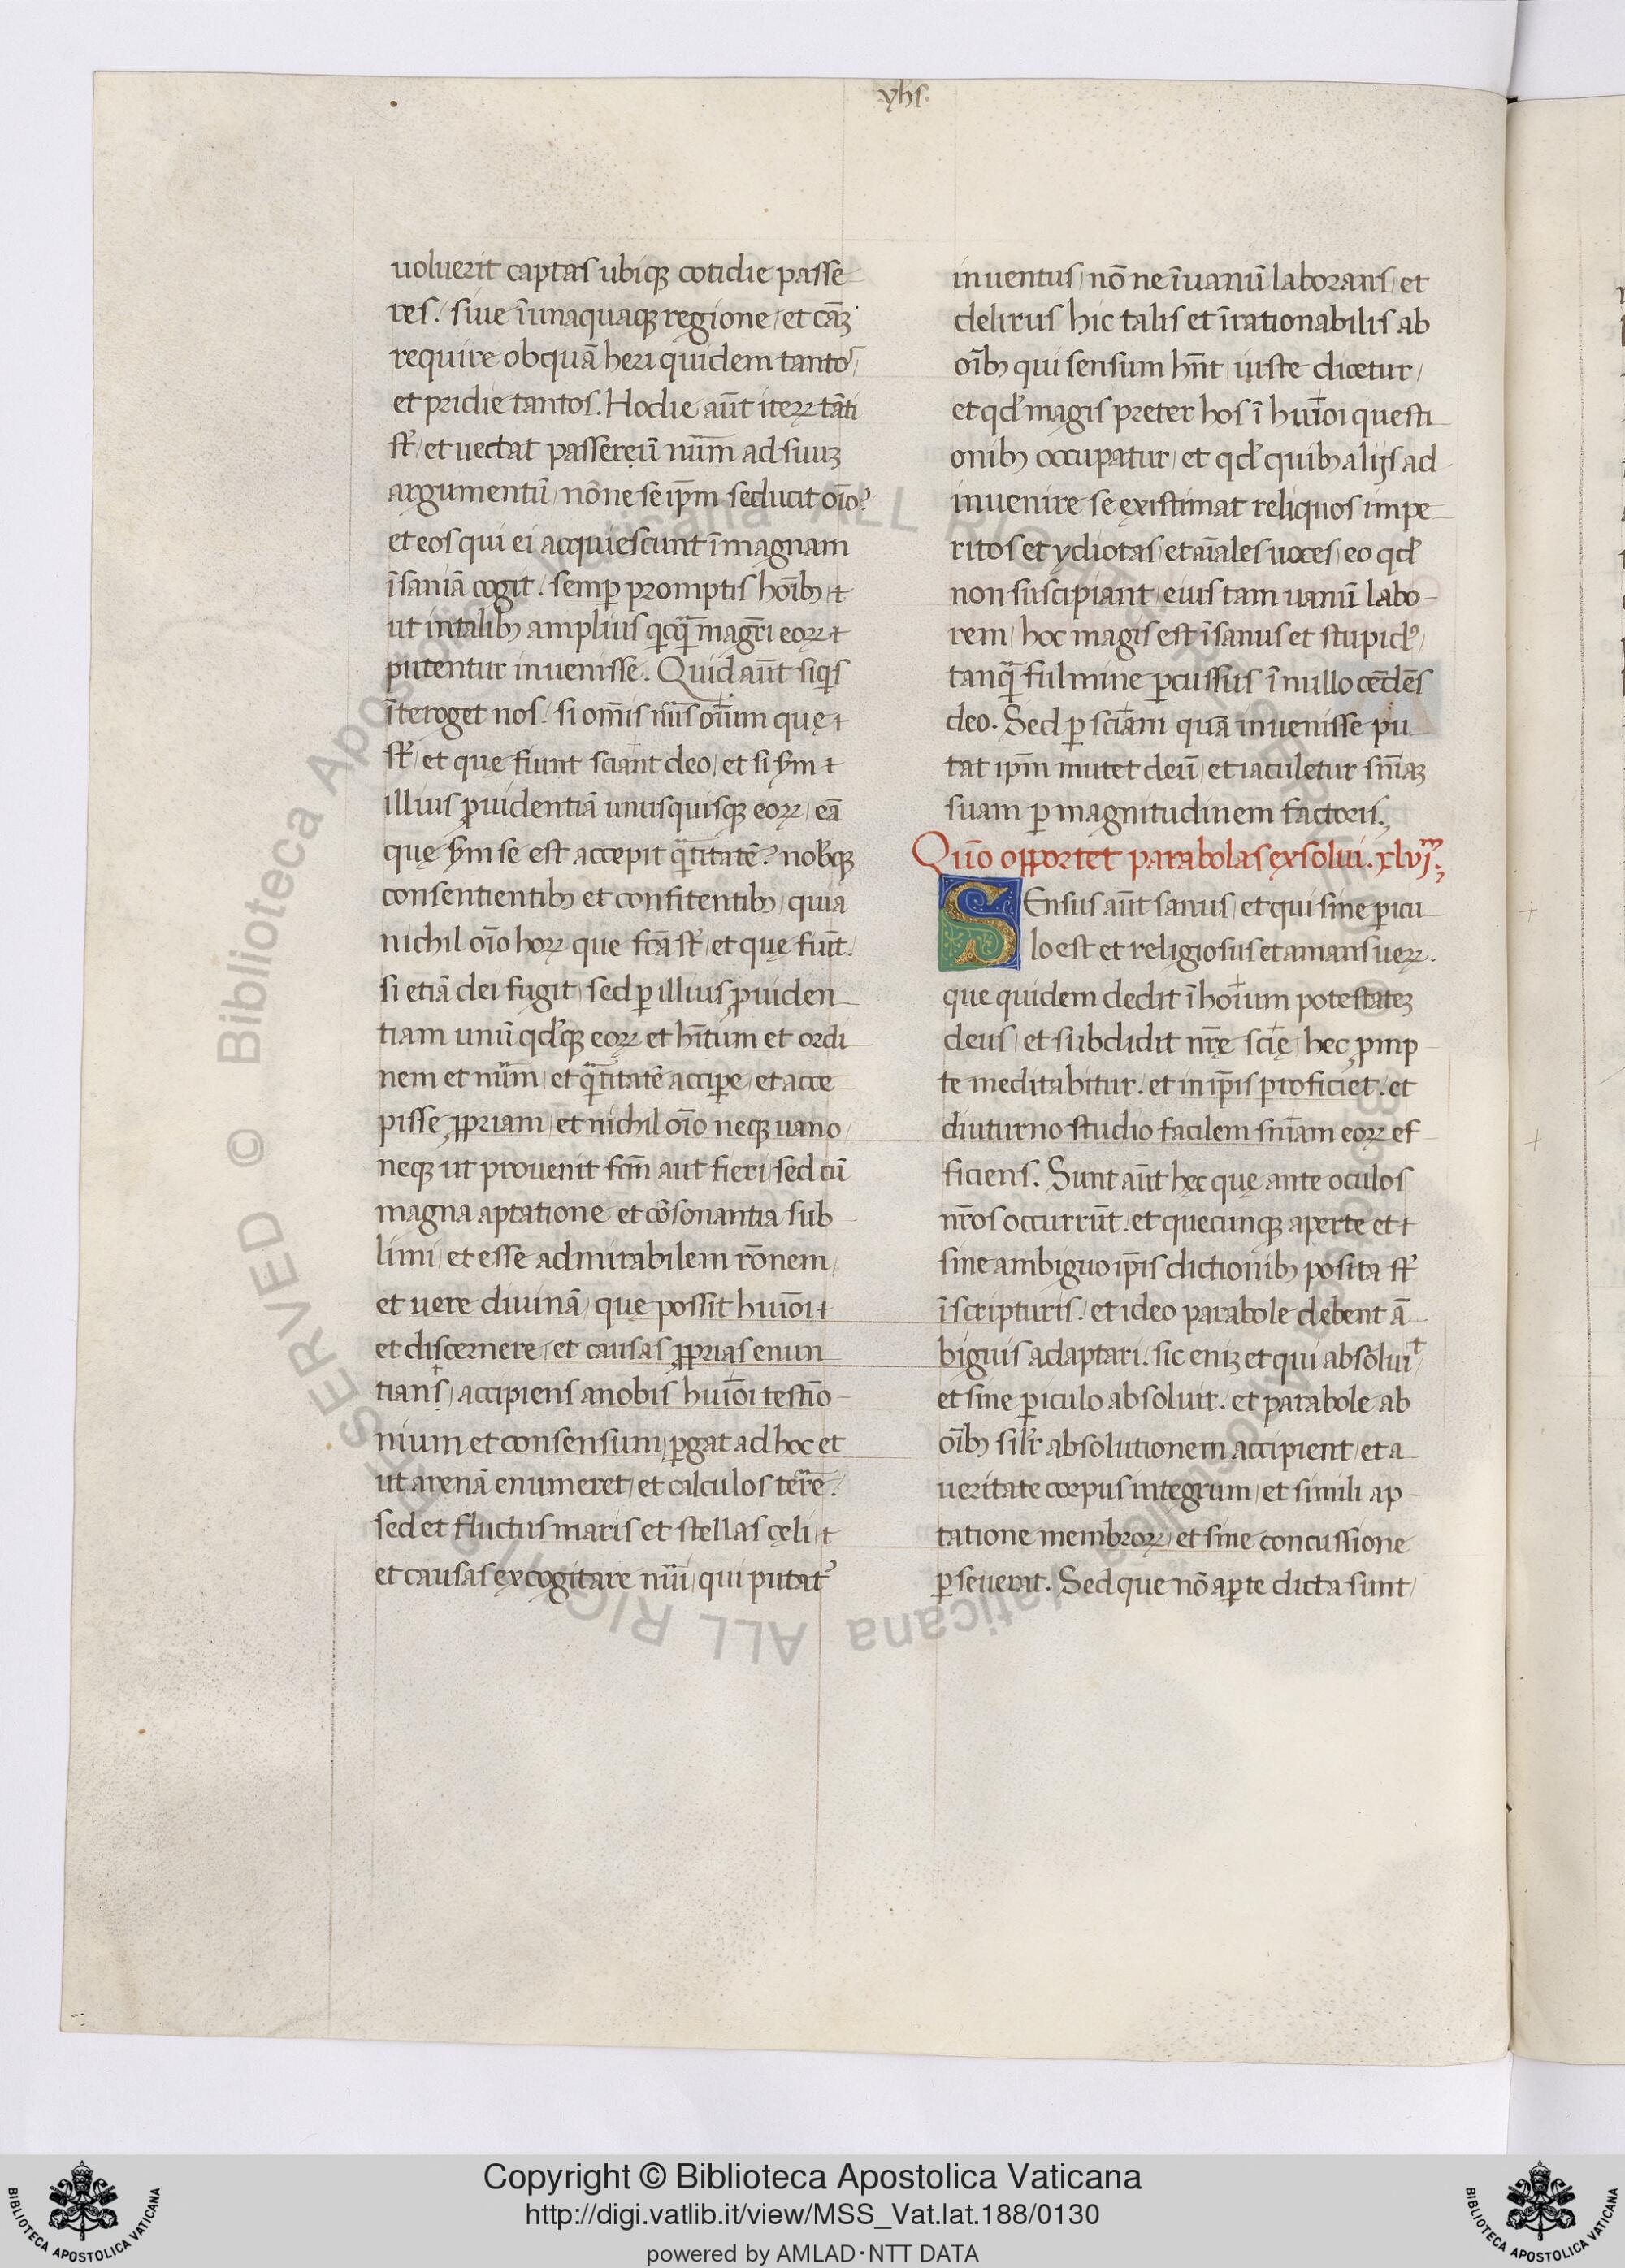 .yhs.
uoluerit captas ubiqꝫ cotidie passe
res. siue ĩunaquaqꝫ regione et cãꝫ
require ob quã heri quidem tantoˢ
et pridie tantos. Hodie aũt iteꝝ tãti
st̃ et uectat passereũ nũm ad suuꝫ
argumentũ nõne se ip̃m seducit oĩo?
et eos qui ei acquiescunt ĩ magnam
ĩsaniã cogit. semꝑ promptis hoĩbꝫ
ut in talibꝫ amplius qͥcqᷓ magr̃i eoꝝ
putentur inuenisse. Quid aũt siqͥs
ĩteroget nos. si om̃is nũs oĩum que
st̃ et que fiunt sciant deo et si ẜm
illius ꝓuidentiã unusquisqꝫ eoꝝ eã
que ẜm se est accepit qᷓtitatẽ? nob̃qꝫ
consentientibꝫ et confitentibꝫ quia
nichil oĩo hoꝝ que fcã st̃ et que fiũt.
si etiã dei fugit sed ꝑ illius ꝓuiden
tiam unũ qd̃qꝫ eoꝝ et hĩtum et ordi
nem et nũm et qᷓtitatẽ acciꝑe et acce
pisse ꝓpriam et nichil oĩo neqꝫ uano
neqꝫ ut prouenit fcm̃ aut fieri sed cũ
magna aptatione et cõsonantia sub
limi et esse admirabilem rõnem
et uere diuinã que possit huiõi
et discernere et causas ꝓprias enun
tians accipiens a nobis huiõi testĩo
nium et consensum ꝑgat ad hoc et
ut arenã enumeret et calculos terr̃e.
sed et fluctus maris et stellas celi
et causas excogitare nũi qui putat᷑
inuentus nõ ne ĩ uanũ laborans et
delirus hic talis et ĩrationabilis ab
oĩbꝫ qui sensum hñt iuste dicetur
et qd̃ magis preter hos ĩ huĩoi questi
onibꝫ occupatur et qd̃ quibꝫ alijs ad
inuenire se existimat reliquos impe
ritos et ydiotas et aĩales uoces eo qd̃
non suscipiant eius tam uanũ labo-
rem hoc magis est ĩsanus et stupidꝰ
tanqᷓ fulmine ꝑcussus ĩ nullo cẽdẽs
deo. Sed ꝑ sciam quã inuenisse pu
tat ip̃m mutet deũ et iaculetur sñiaꝫ
suam ꝑ magnitudinem factoris.
Quõ opportet parabolas exsolui. xlvij.ᵐ
SEnsus aũt sanus et qui sine ꝑicu
lo est et religiosus et amans ueꝝ.
que quidem dedit ĩ hoĩum potestateꝫ
deus et subdidit nr̃e scie hec ꝓmp
te meditabitur. et in ip̃is proficiet. et
diuturno studio facilem sñiam eoꝝ ef
ficiens. Sunt aũt hec que ante oculos
nr̃os occurrũt. et quecunqꝫ aperte et
sine ambiguo ip̃is dictionibꝫ posita st̃
ĩ scripturis. et ideo parabole debent ã
biguis adaptari. sic eniꝫ et qui absoluiᵗ
et sine ꝑiculo absoluit. et parabole ab
oĩbꝫ silr̃ absolutionem accipient et a
ueritate corpus integrum et simili ap-
tatione membroꝝ et sine concussione
ꝑseuerat. Sed que nõ aꝑte dicta sunt
© Biblioteca Apostolica Vaticana ALL RIGHTS RESERVED
Copyright © Biblioteca Apostolica Vaticana
http://digi.vatlib.it/view/MSS_Vat.lat.188/0130
powered by AMLAD·NTT DATA
BIBLIOTECA APOSTOLICA VATICANA
BIBLIOTECA APOSTOLICA VATICANA